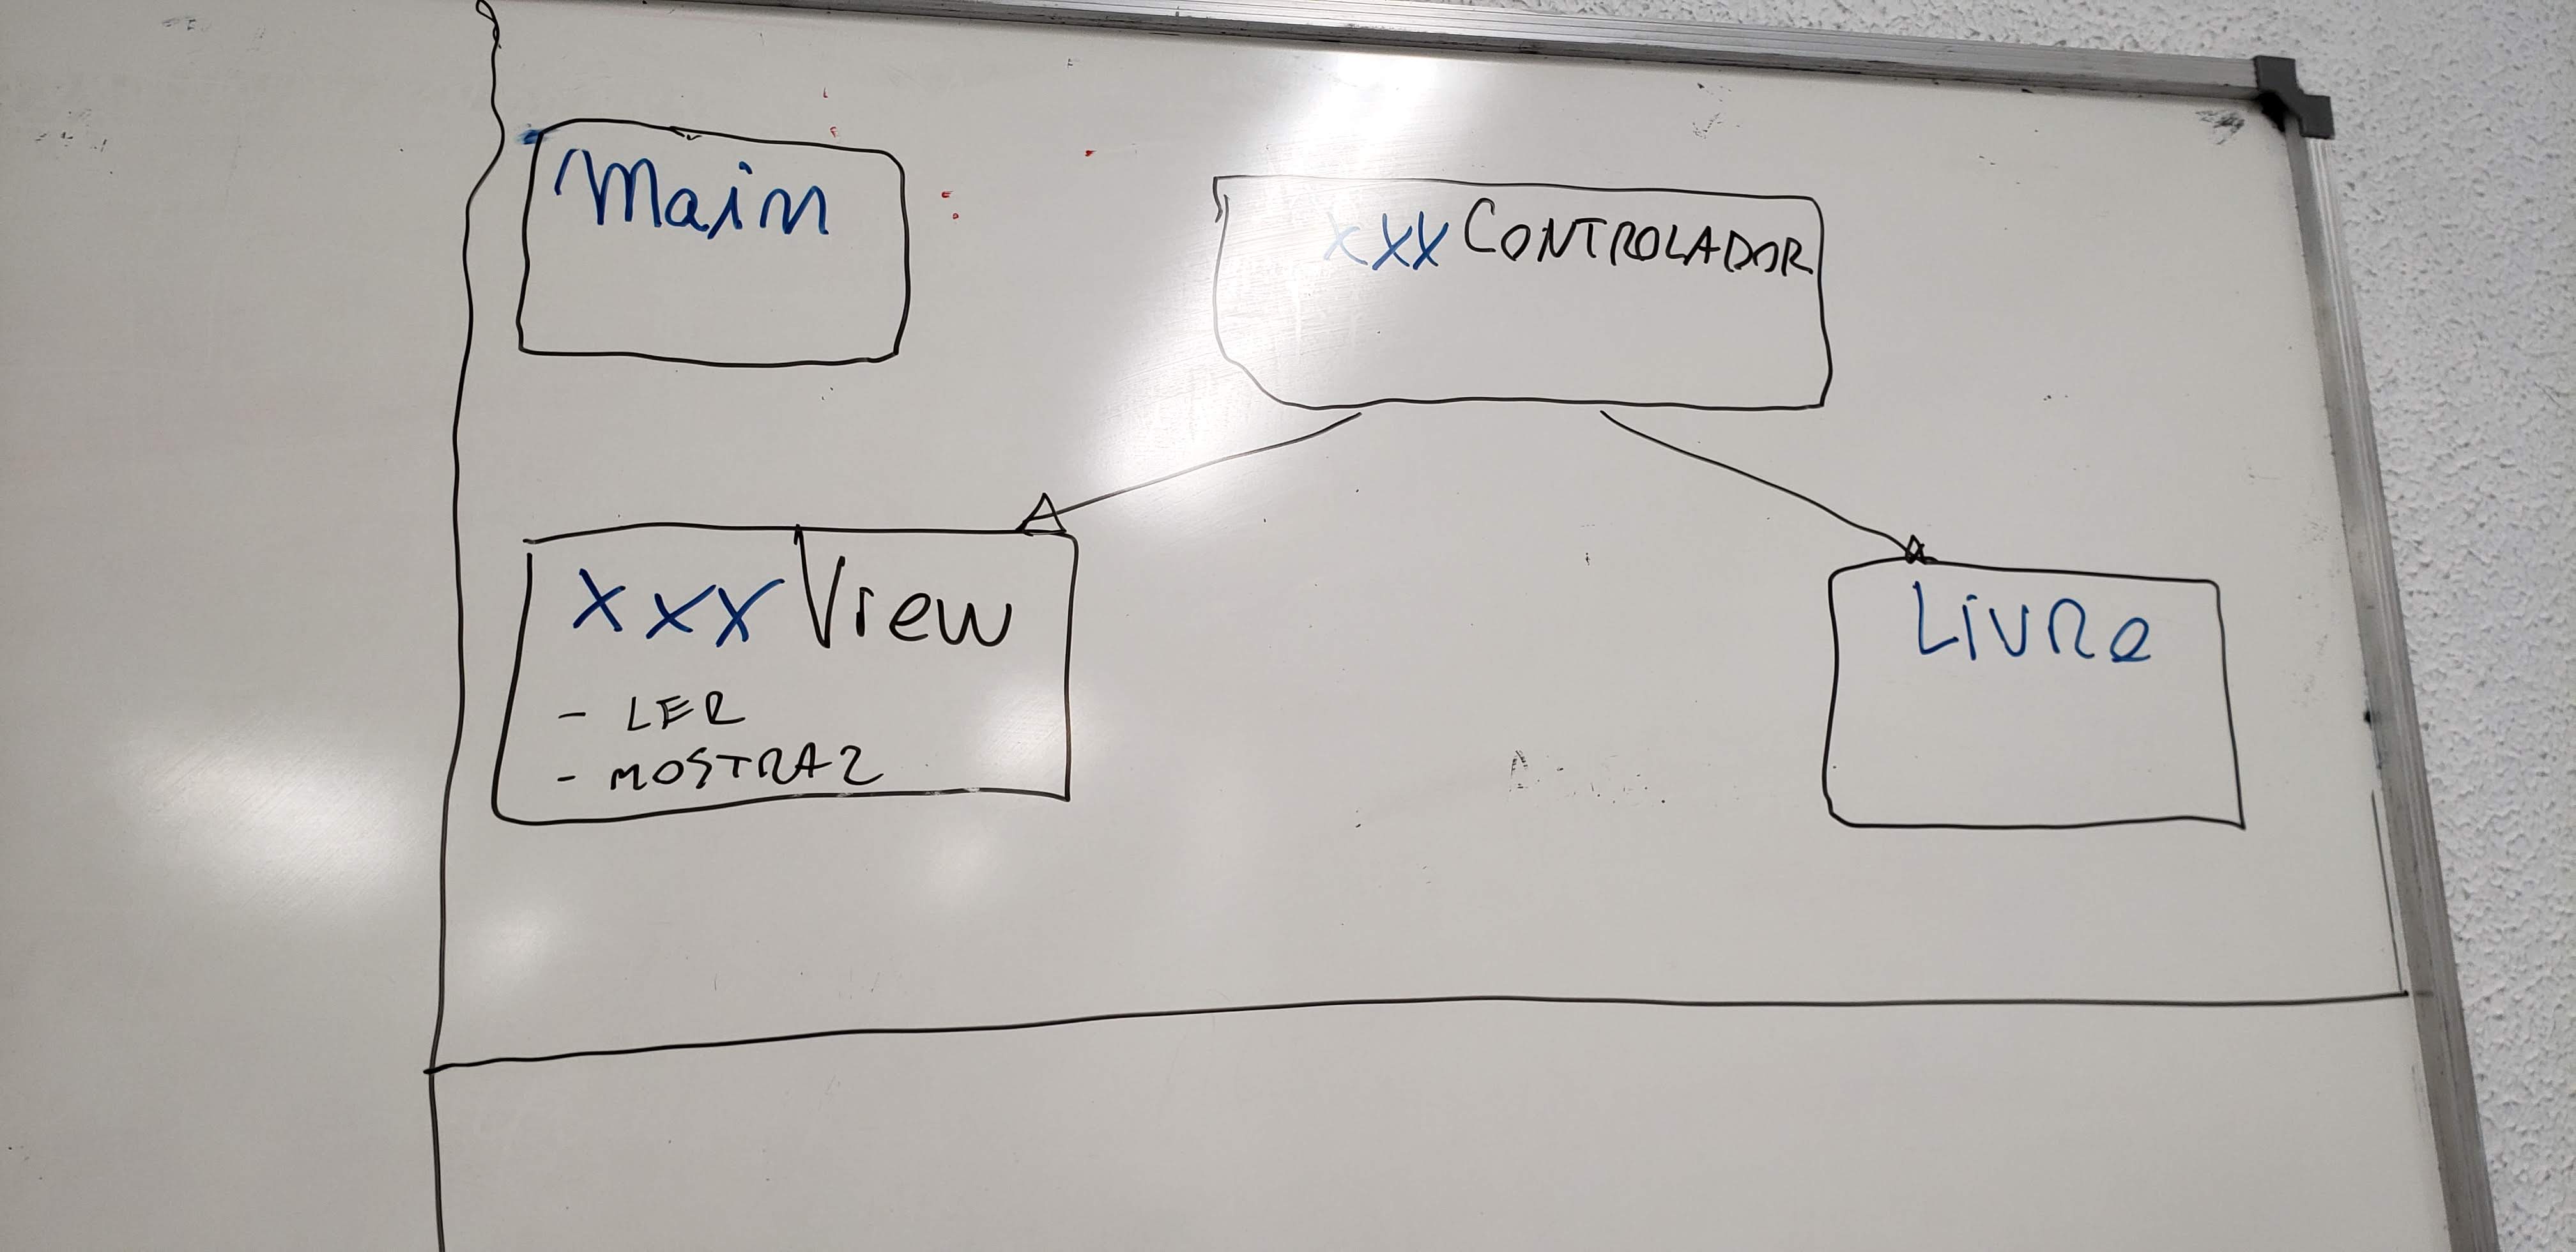 Main
xxxCONTROLADOR
xxxView
- LER
- MOSTRAR
LIVRO